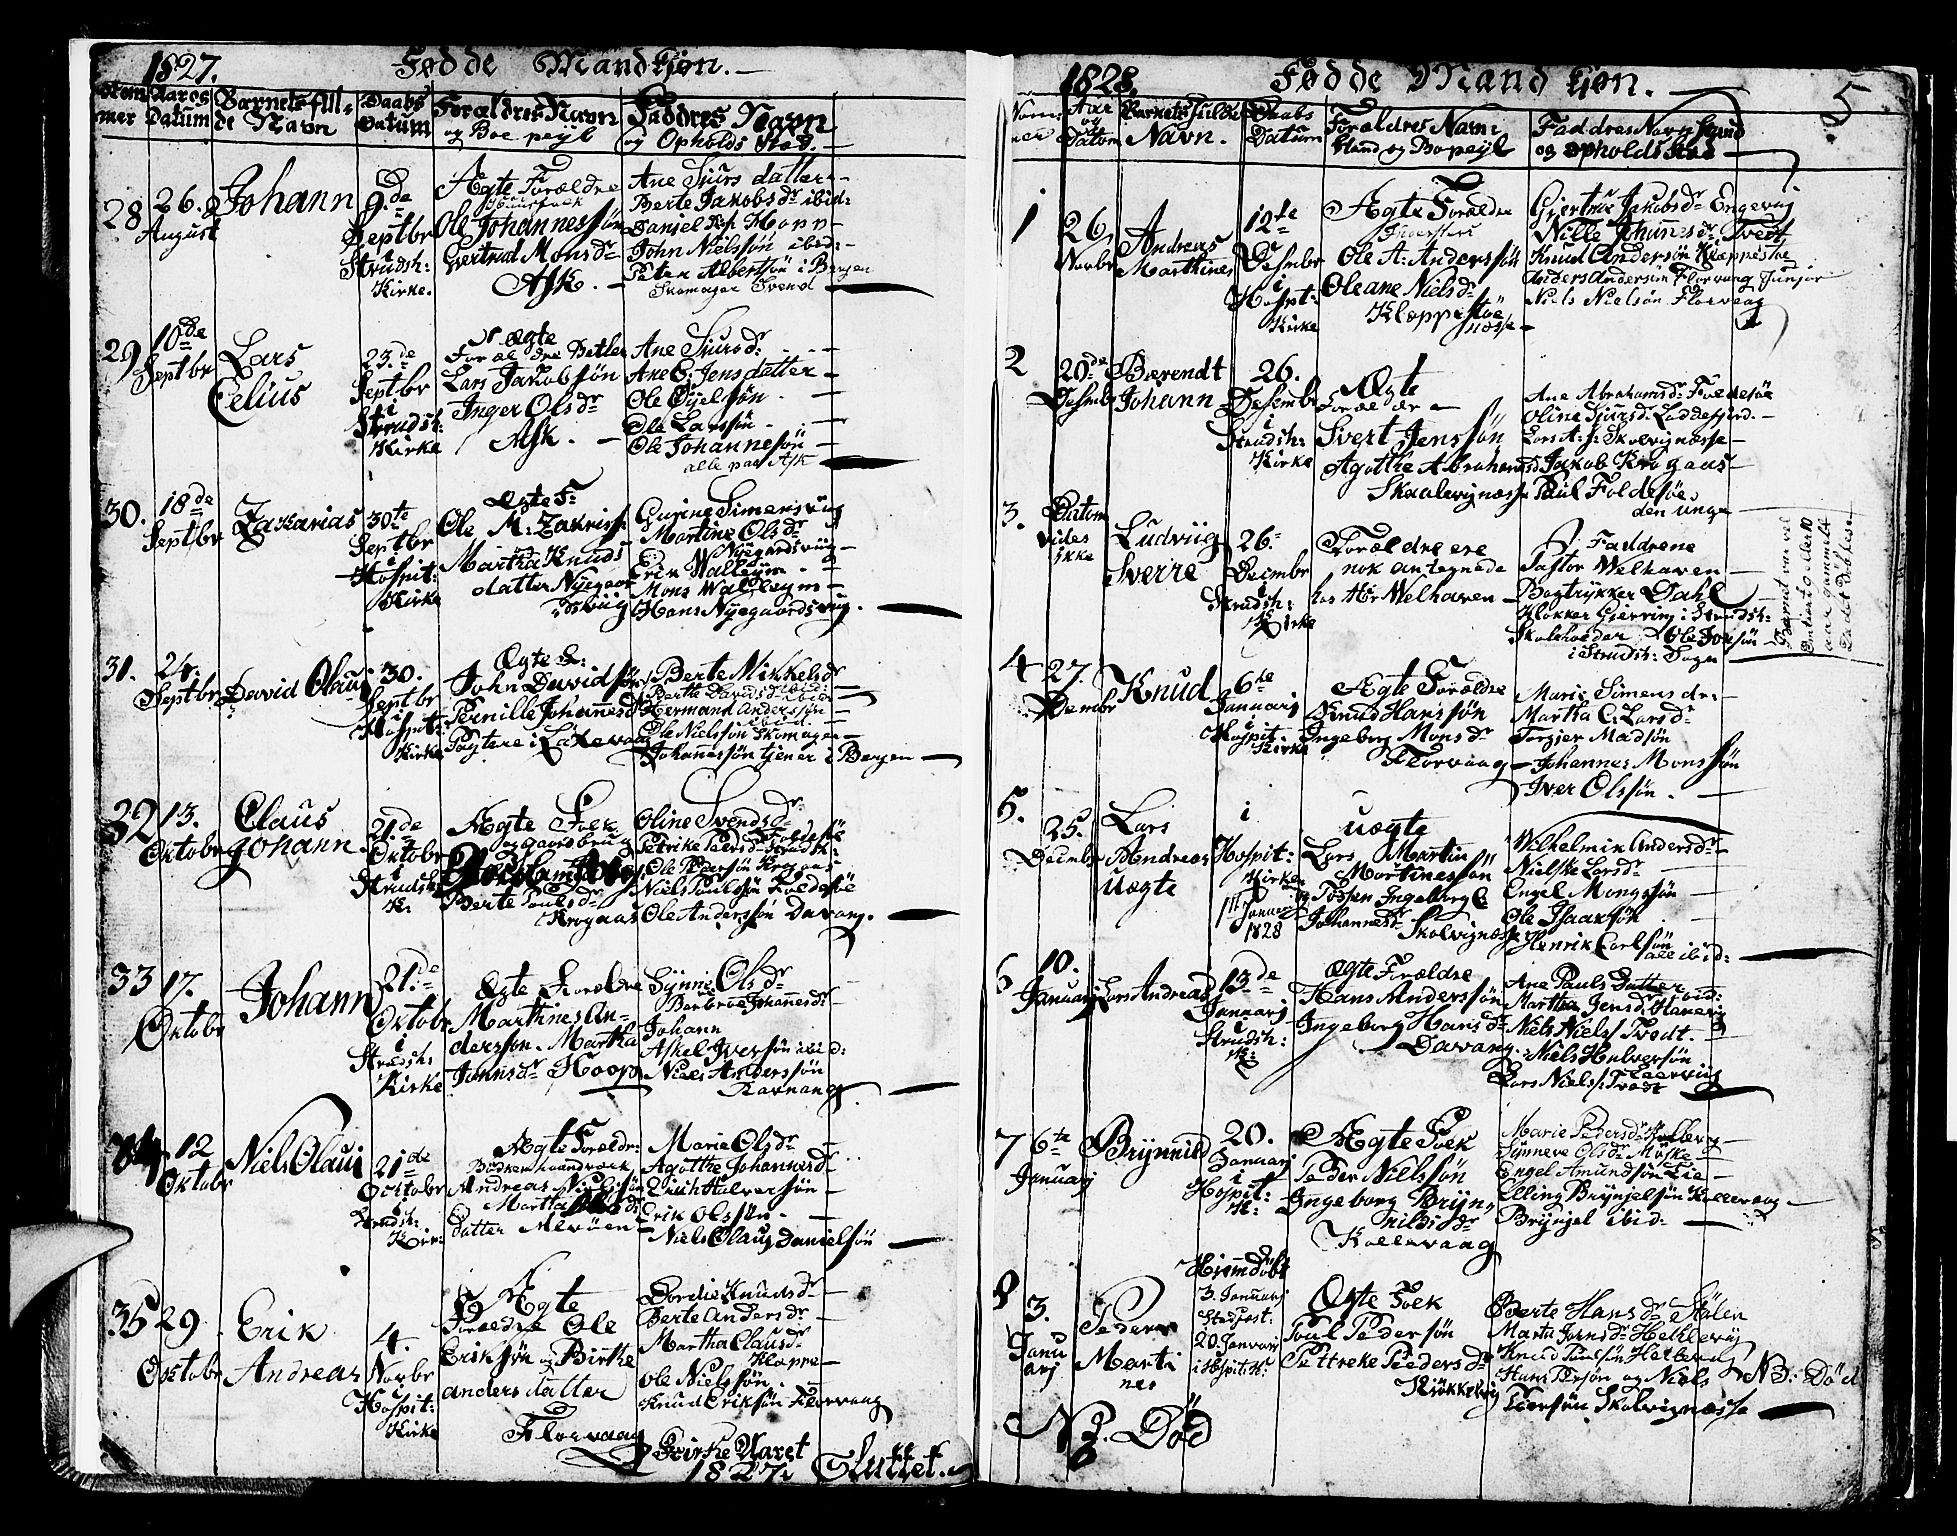 1827. Födde Mandkjøn.
Nom mer
Aar og Datum
Barnets fulde Navn
Daabs Datum
Forældres Navn og Boe peyl
Faddres Navn og Opholds Sted.
28
26. August
Johann
9de Septbr i Strudsh: Kirke.
Ægte Forældre
Ole Johannessön
Gertrud Monsdr
Ask.
Ane Siurs datter
Berte Jakobsdr ibid:
John Nielssön ibid:
Peter Albertsön i Bergen
Skomager Svend
29
10de Septbr
Lars Celius
23.de Septbr i Strudsh: Kirke
Uægte
Forældre Betler
Lars Jakobsön
Inger Olsdr
Ask.
Ane Siursdr:
Ane C. Jensdatter
Ole Larssön
Ole Johannesön
alle paa Ask
30.
18de Septbr
Zakarias
30te Septbr i Hospit: Kirke
Ægte F:
Ole M: Zakriss:
Martha Knuds
datter Nyegaards
viig
Gurine Simensviig
Martine Olsdr
Nyegardsviig
Erik Walleym
Mons Walleym
Hans Nyegaardsviig.
31.
24. Septbr
David Olaus
30. Septbr i Hospit: Kirke
Ægte F:
John Davidsön
Pernille Johannesdr
i Laxevaag
Berte Mikkelsdr
Berte Davidsdr ibidem
Hermand Anderssön
ibid:
Ole Nielssön Skomager
Johannessön tjener i Bergen
32
13. Oktobr
Claus Johann
21.de Oktobr i Strudsh: K:
Ægte Folk
og gaardbrug
Berte Poulsdr
Krogaas
Oline Svendsdr
Foldesöe
Petrike Peersdr
Ole Pedersön Krogaas
Niels Poulsön Foldesöe
Ole Anderssön Davang.
33
17. Oktobr
Johann
21.de Oktobr i Strudsh: Kirke
Ægte Forældre
Martines An-
dersson. Martha
Johnsdr Hoop
Synne Olsdr
Barbroe Johannesdr
Johann
Askel Iversön ibid:
Niels Anderssön
Ravnang
34
12 Oktobr
Niels Olaus
21de Octobr i Strudsh: Kirr:
Ægte Forældr:
Andreas Nielsön
Martha
datter Alvöen
Marie Olsdr
Agothe Johannesdr
Erich Halversön
Erik Olssön
Niels Olaus Danielsön
35
29 Octobr
Erik Andreas
4. Novbr i Hospit: Kirke
Ægte
Forældre Ole
Eriksön og Birthe
anders datter
Florvaag
Dordie Knudsdr
Berte Andersdr
Martha Clausdr
Kloppe
Ole Nielssön.
Knud Eriksön Florvaag
Kirke Aaret
1827. Sluttet.
1828. Födde Mandkjøn. 5
Nom: mer
Aar og Datum
Barnets fulde Navn.
Daabs Datum
Forældres Navn Stand og Bopeyl
Faddres Navn Stand og opholdsstad
1
26 Novbr
Andreas Marthines
12te Desmbr i Hospt: Kirke
Ægte Forældre
Ole A: Anderssön
Oleane Nielsdr
Klæppestöe
næsse
Gjertrue Jakobsdr Engevig
Nille Johannesdr Tvedt
Knud Andersön Klæppestöe
Anders Andersön Florvaag Junjor
Niels Nielsön Florvaag
2
20de Desmbr
Bærendt Johann
26. Desembr i Strudsh: Kirke
Ægte
Forældre
Svert Jenssön
Agothe Abrahamsdr
Skaalevignæsse
Ane Abrahamsdr Foldesöe
Oline Siursdr Laddefiord.
Lars A: J: Skolvignæsse
Jakob Krogaas
Poul Foldesöe
den unge
3.
Datom vides ikke
Ludvig Sverre
26. Decmbr i Strudsh: Kirke
Forældre ere
nok antegnede
hos Hör Welhaven
Faddrene
Pastor Welhaven
Bogtrykker Dahl
Klokker Gierring i Strudsh:
Skoleholder Ole Jonsön
i Strudsh: Sogn
Barnet var vel
aar gammelt
4
27. Decmbr
Knud
6te Januarj i Hospit. Kirke
Ægte Forældre
Knud Hanssön
Ingeborg Monsdr
Florvaag
Marie Simens dr:
Martha C: Larsdr
Torgier Madsön
Johannes Monssön
Iver Olsön.
5.
25. Decmbr
Lars Andreas uægte
i Hospit: Kirke 1te Januarj 1828
uægte
Lars Martin
Martinessön
og Tössen Ingeborg C
Johannesdr
Skolvignæsse
Wilhelmin Andersdr
Nielske Larsdr
Engel Mongssön
Ole Isaaksön
Henrik Carlsön
alle ibid:
6
10. Januarj
Lars Andreas
13de Januarj i Strudsh: K:
Ægte Forældre
Hans Anderssön
Ingeborg Hansdr
Davang.
Ane Pauls Datter ibid:
Martha Jensdr Hanevig
Niels Niels: Tvedt.
Niels Halversön
Lars Niels: Tvedt
7
6te Januarj
Brynnild
20. Januarj i Hospit: K:
Ægte Folk
Peder Nielssön
Ingeborg Bryn,
nildsdr
Kollevaag
Marie Pedersdr Kollevg
Synneve Olsdr Möske
Engel Amundsön Lie
Elling Brynjelsön Kollevaag
Brynjel ibid:
8
3. Januarj
Peder Martines
Hiemdöbt 3. Januarj Stadfæst: 20. Januarj i Hospit: K:
Ægte Folk
Poul Pedersön
Pettreke Pedersdr
Kiökkelvig
Berte Hansdr Stölen
Marta Jonsdr Hetlevig
Knud Poulsön Hetlevig
Hans Persön og Niels
Peersön Skolvignæsse
NB: Död
NB. Död